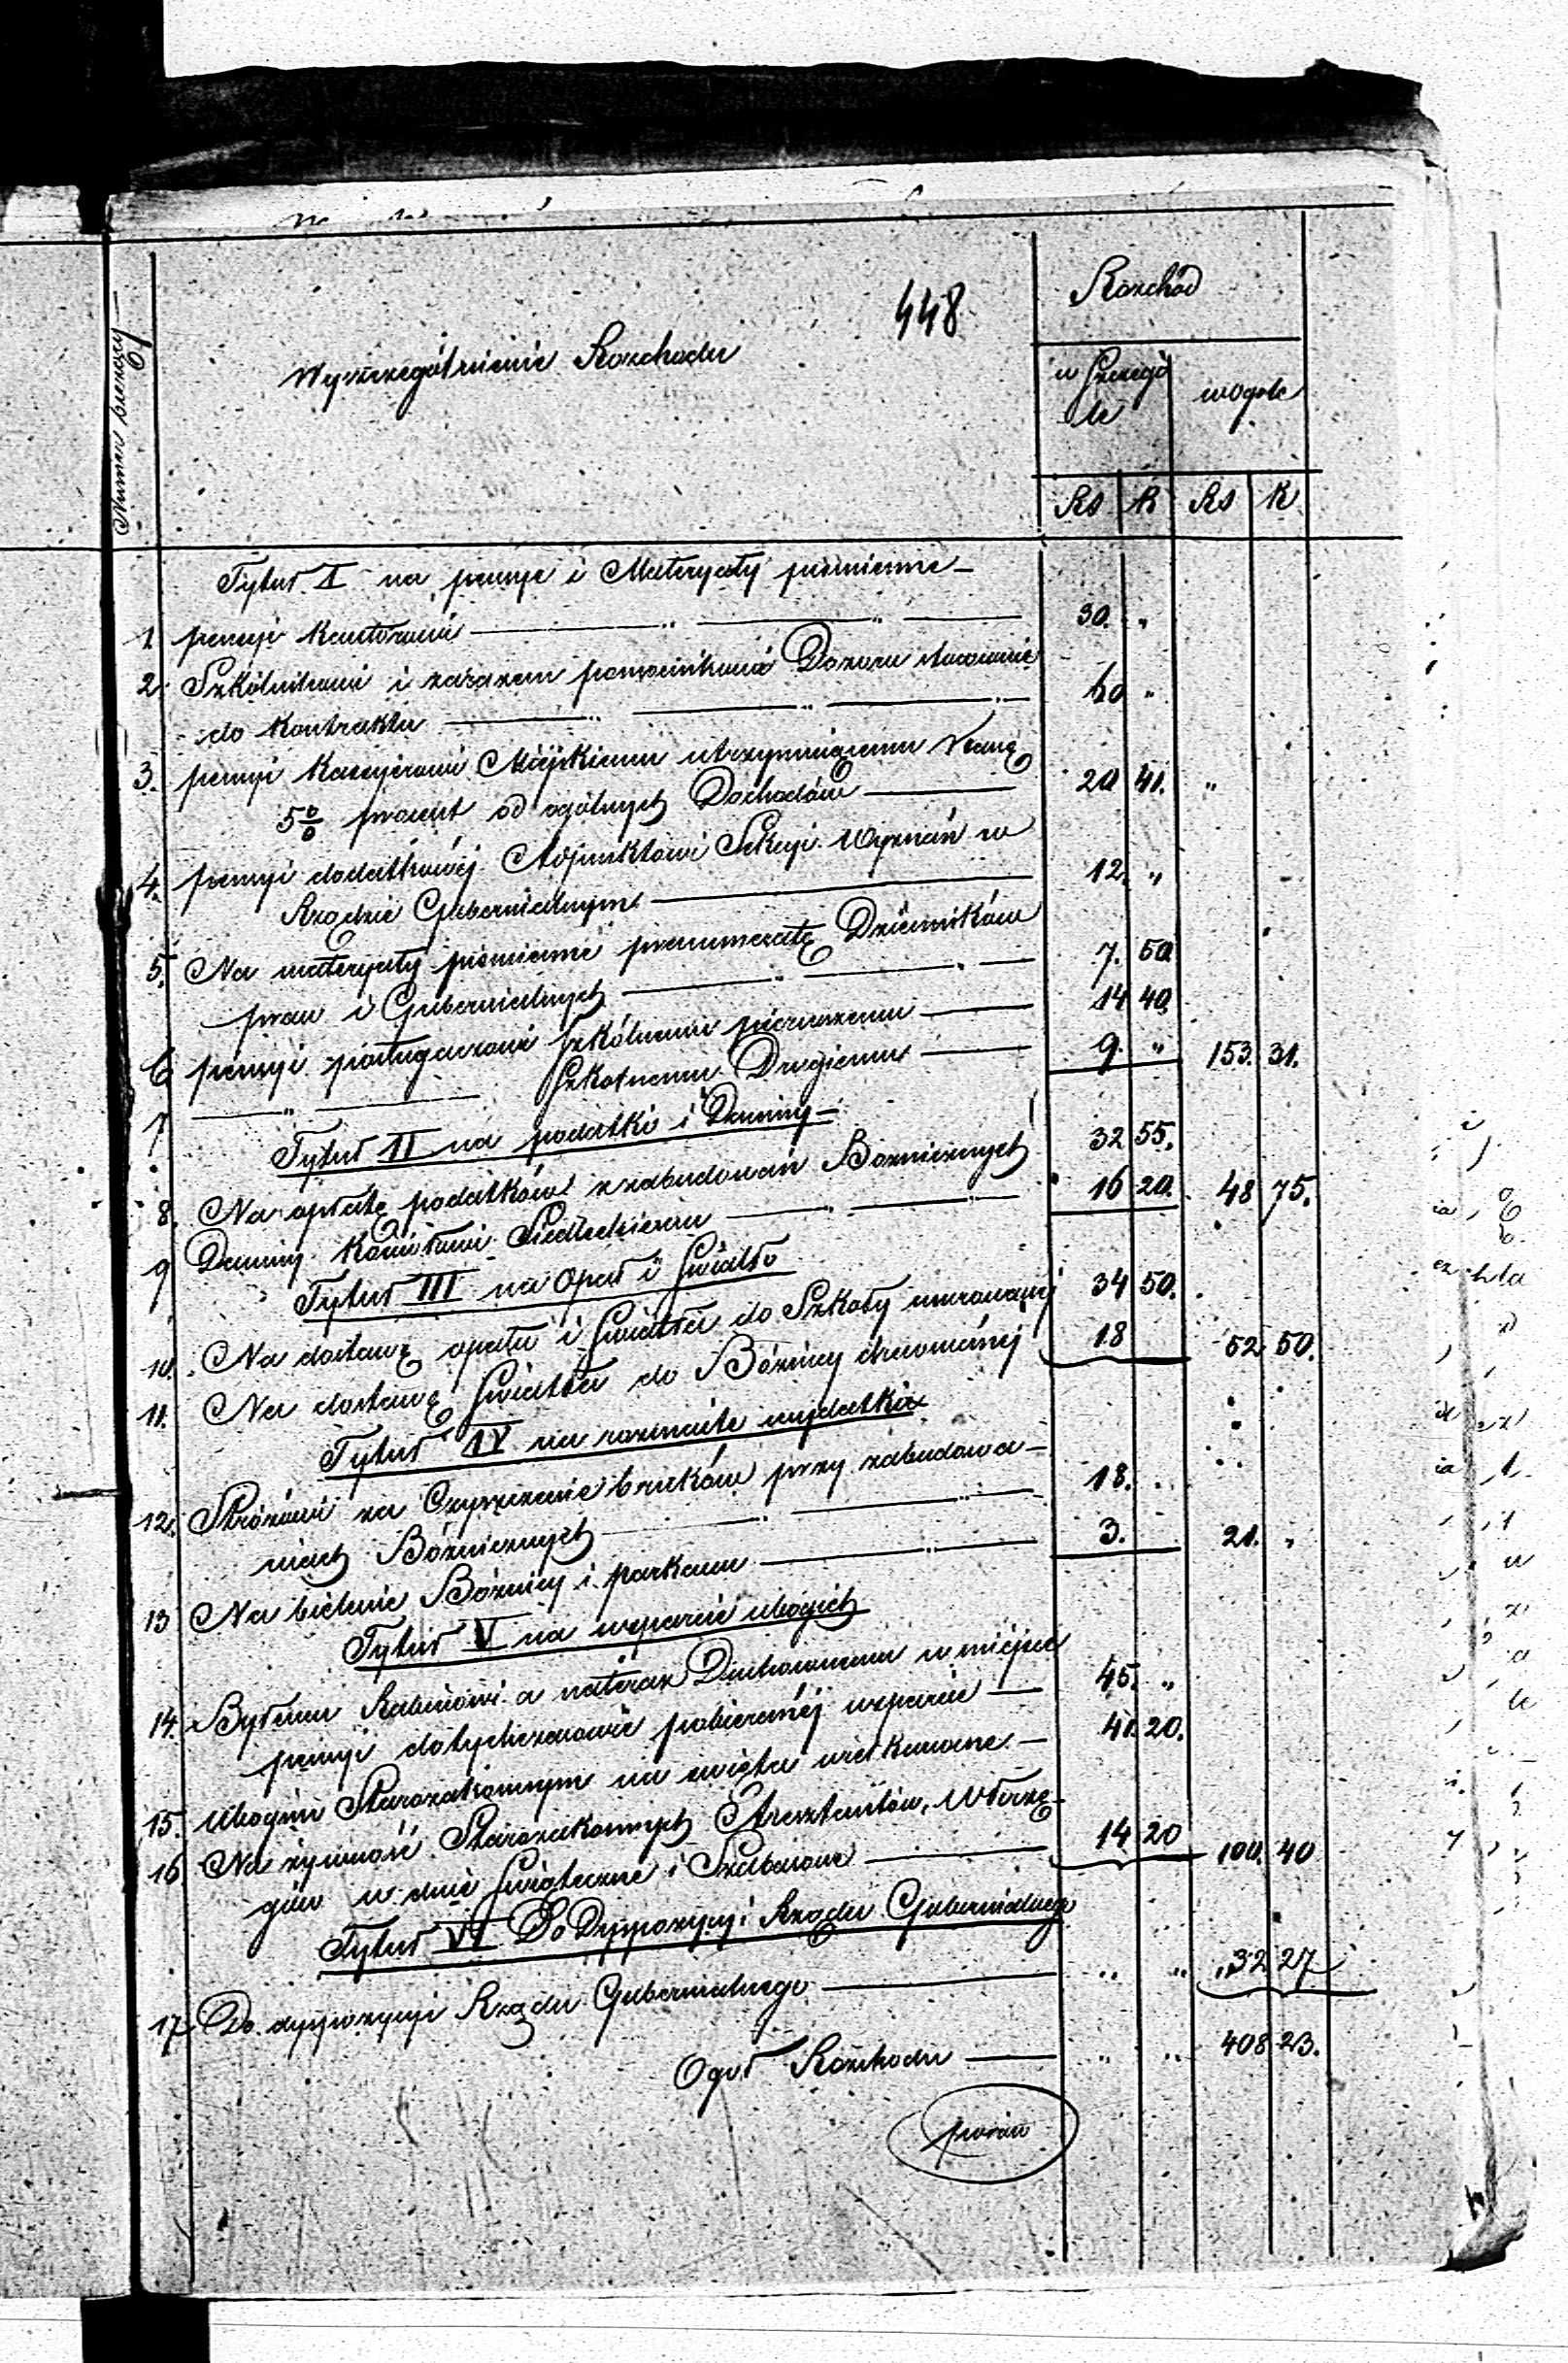 448
Numer bieżący
Wyszczególnienie Rozchodu
Rozchód
w Szczegó
le
w Ogóle
Rs K Rs K
Tytuł I na pensye i Materyały piśmienne
1 pensyi Kantorowi 30. "
2. Szkólnikowi i zarazem pomocnikowi Dozoru stosownie
do Kontraktu 60 "
3. pensyi Kassyerowi Miejskiemu utrzymującemu
5% procent od ogólnych Dochodów 20 41. "
4. pensyi dodatkowéj Adjunktowi Sekcyi Wyznań w
Rządzie Gubernialnym 12. "
5. Na materyały piśmienne prenumeratę Dzienników
praw i Gubernialnych 7. 50
6 pensyi posługaczowi Szkólnemu pierwszemu 14 40
7 " Szkolnemu Drugiemu 9. " 153. 31.
Tytuł II na podatki i Daniny
8. Na opłatę podatków z zabudowań Bożniczych 32 55.
9 Daniny Komitetowi Siedleckiemu 16 20. 48 75.
Tytuł III na Opał i Światło
10. Na dostawę opału i Światła do Szkoły murowanéj 34 50.
11. Na dostawę Światła do Bóżnicy drewnianéj 18 52 50.
Tytuł IV na rozmaite wydatki
12. Stróżowi za Czyszczenie bruków przy zabudowa-
niach Bóżnicznych 18.
13 Na bielenie Bóżnicy i parkanu 3. 21. "
Tytuł V na wsparcie ubogich
14. Byłemu Rabinowi a nateraz Duchownemu w miejsce
pensyi dotychczasowie pobieranéj wsparcie 45. "
15. Ubogim Starozakonnym na święta wielkanocne 41. 20.
16. Na żywność Starozakonnych Aresztantów, Włóczę-
gów w dnie Świąteczne i Szabasowe 14 20 100. 40
Tytuł VI Do Dyspozycyi Rządu Gubernialnego
17 Do dyspozycyi Rządu Gubernialnego " " 32 27
Ogół Rozchodu " " 408 23.